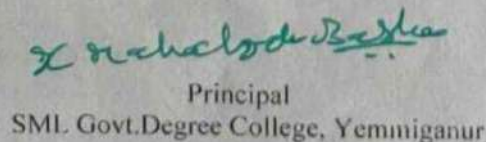 Principal
SML Govt.Degree College, Yemmiganur